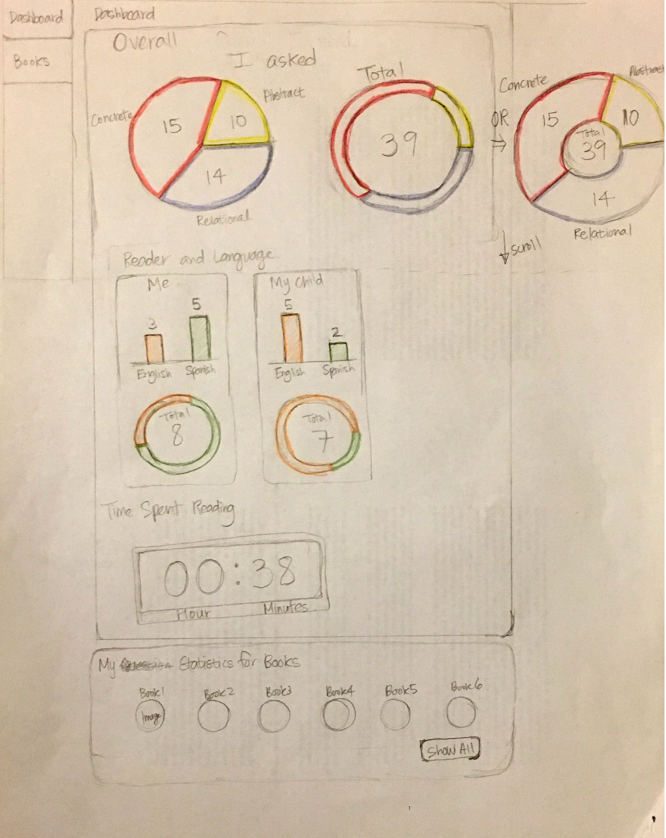 Dashboard
Dashboard
Books
Overall
I asked
Concrete
Abstract
15
10
14
Relational
Total
39
OR
Concrete
Abstract
15
10
Total
39
14
Relational
scroll
Reader and Language
Me
3
5
English Spanish
Total
8
My Child
5
2
English Spanish
Total
7
Time Spent Reading
00:38
Hour Minutes
My Statistics for Books
Book1 Book2 Book3 Book4 Book5 Book6
Image
Show All